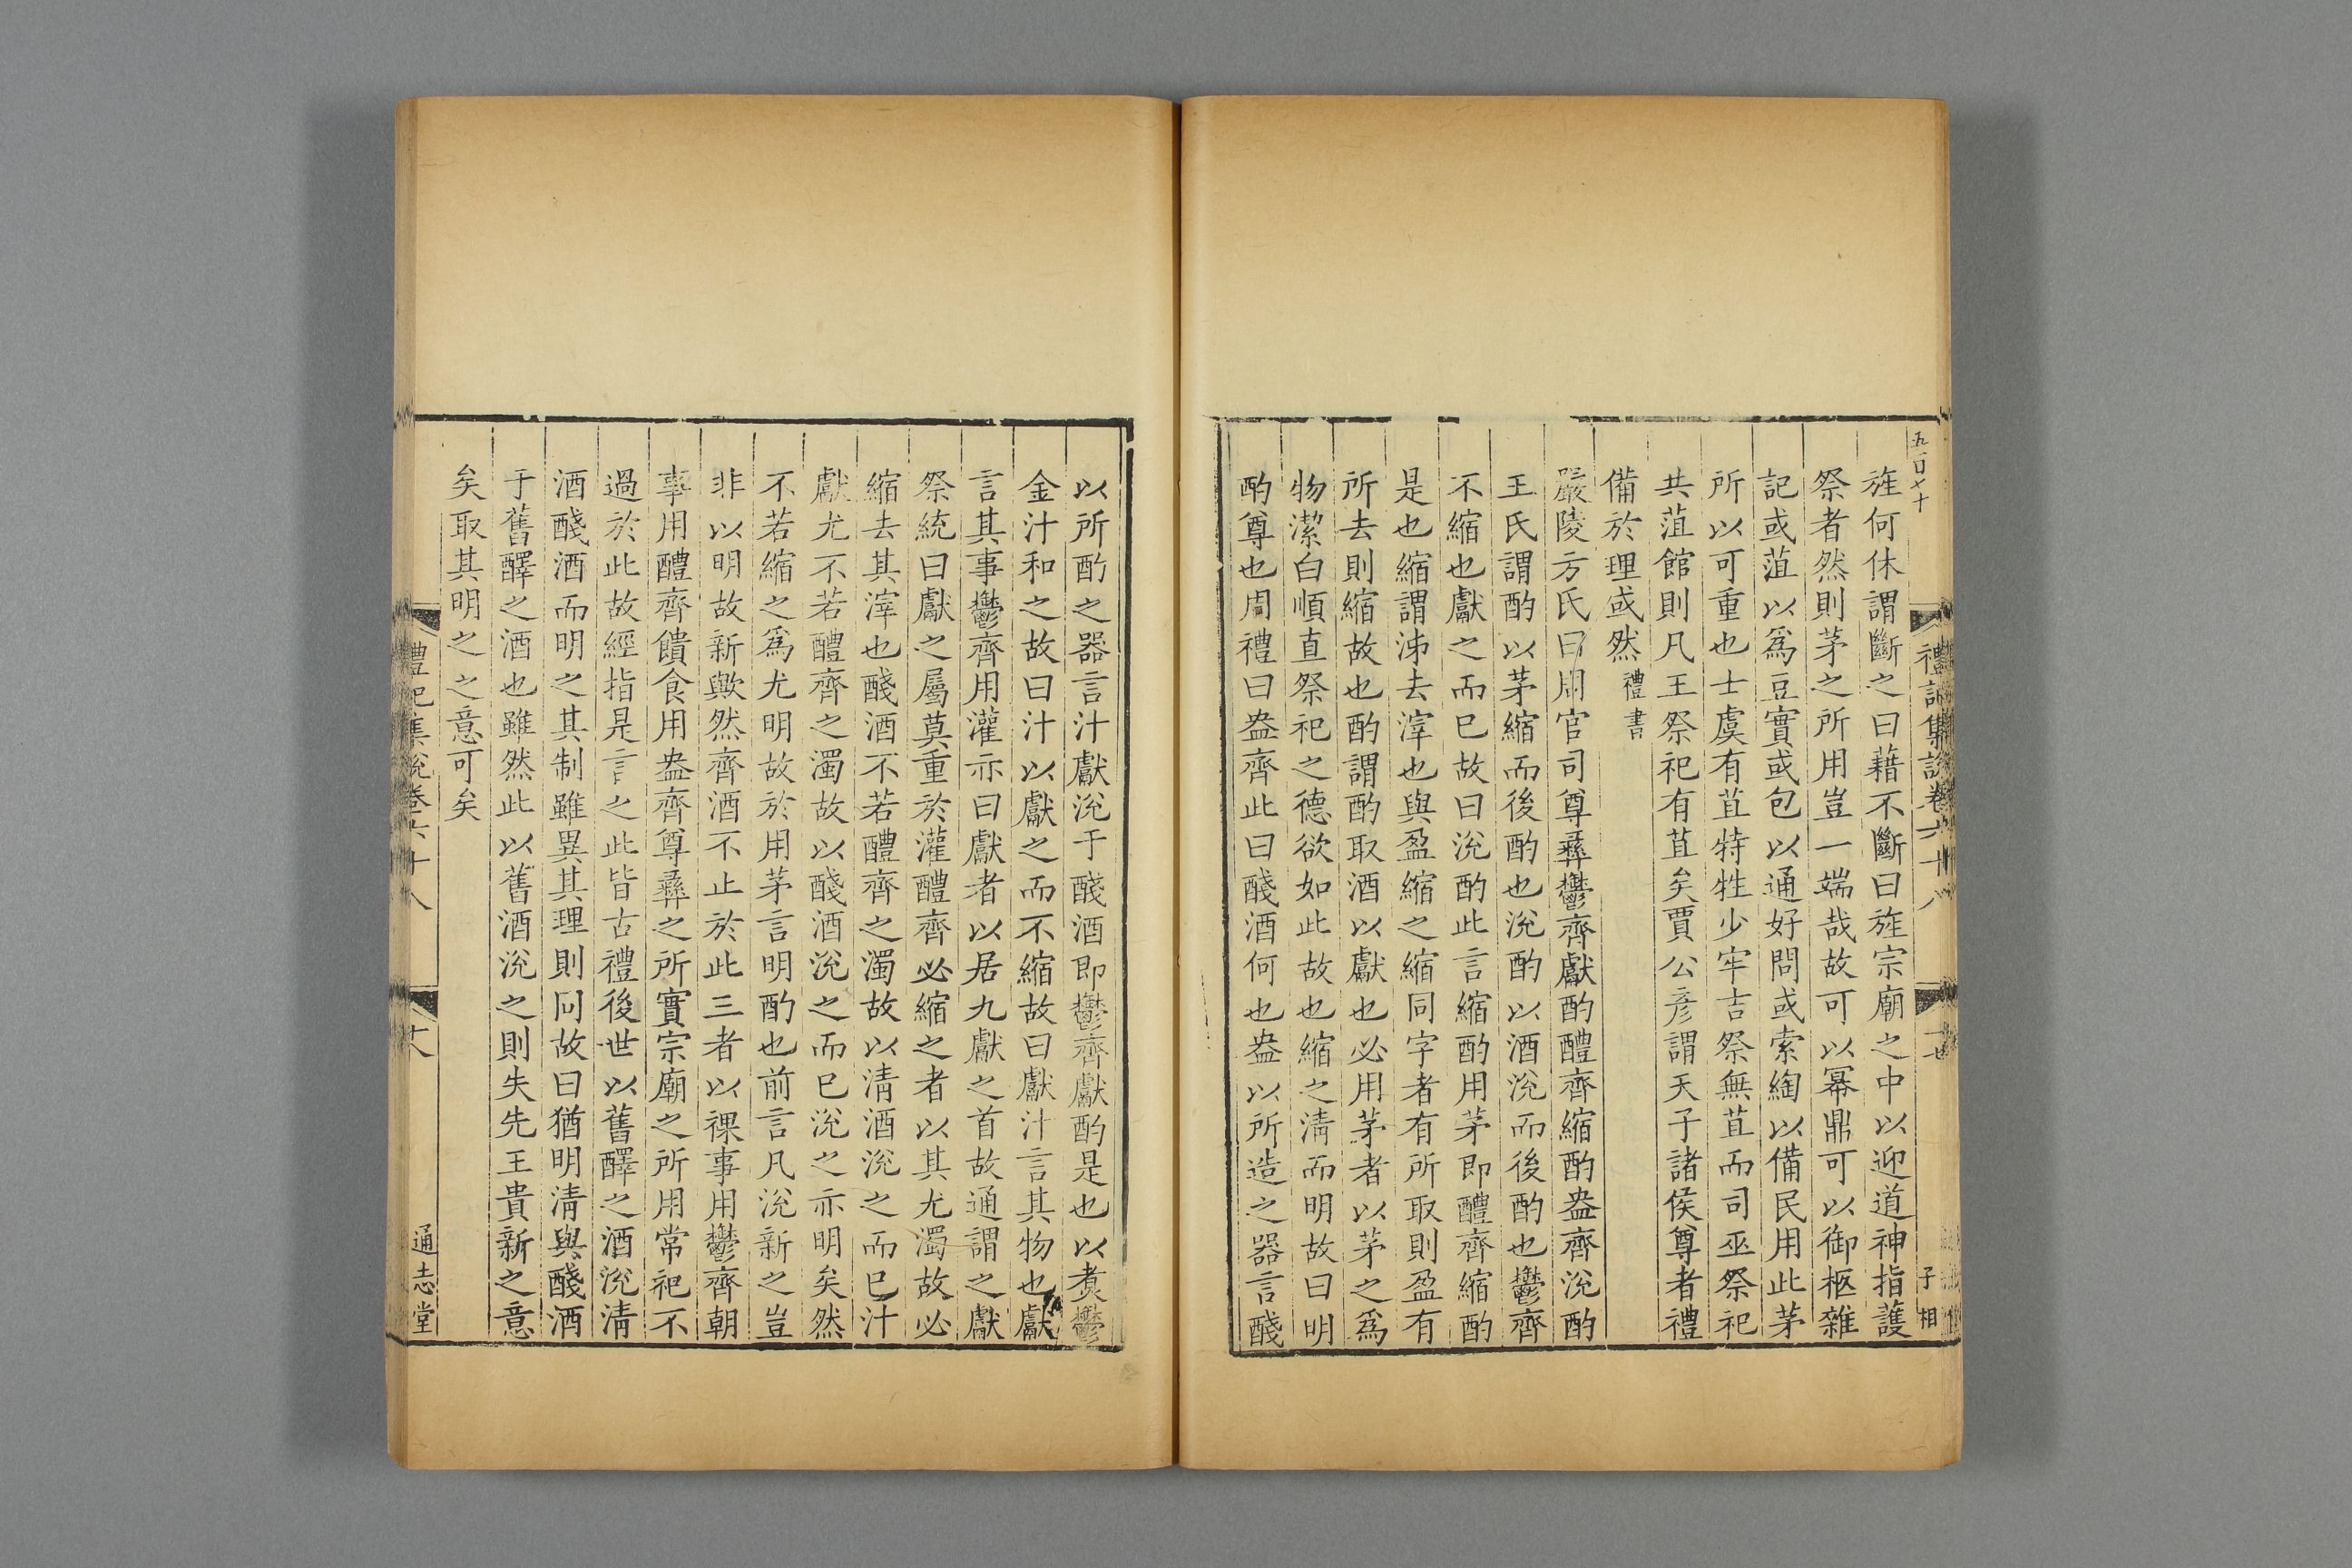 五百七十
旌何休謂斷之曰藉不斷曰旌宗廟之中以迎道神指護
祭者然則茅之所用豈一端哉故可以冪鼎可以御柩雜
記或菹以爲豆實或包以通好問或索綯以備民用此茅
所以可重也士虞有苴特牲少牢吉祭無苴而司巫祭祀
共菹館則凡王祭祀有苴矣賈公彦謂天子諸侯尊者禮
備於理或然禮書
嚴陵方氏曰周官司尊彝鬱齊獻酌醴齊縮酌盎齊涗酌
王氏謂酌以茅縮而後酌也涗酌以酒涗而後酌也鬱齊
不縮也獻之而巳故曰涗酌此言縮酌用茅即醴齊縮酌
是也縮謂泲去滓也與盈縮之縮同字者有所取則盈有
所去則縮故也酌謂酌取酒以獻也必用茅者以茅之爲
物潔白順直祭祀之德欲如此故也縮之淸而明故曰明
酌尊也周禮曰盎齊此曰醆酒何也盎以所造之器言醆
禮記集說卷六十八
子相
以所酌之器言汁獻涗于醆酒即鬱齊獻酌是也以煑鬱
金汁和之故曰汁以獻之而不縮故曰獻汁言其物也獻
言其事鬱齊用灌亦曰獻者以居九獻之首故通謂之獻
祭統曰獻之屬莫重於灌醴齊必縮之者以其尤濁故必
縮去其滓也醆酒不若醴齊之濁故以淸酒涗之而巳汁
獻尤不若醴齊之濁故以醆酒涗之而巳涗之亦明矣然
不若縮之爲尤明故於用茅言明酌也前言凡涗新之豈
非以明故新歟然齊酒不止於此三者以祼事用鬱齊朝
事用醴齊饋食用盎齊尊彝之所實宗廟之所用常祀不
過於此故經指是言之此皆古禮後世以舊醳之酒涗淸
酒醆酒而明之其制雖異其理則同故曰猶明淸與醆酒
于舊醳之酒也雖然此以舊酒涗之則失先王貴新之意
矣取其明之之意可矣
禮記集說卷六十八
十八
通志堂